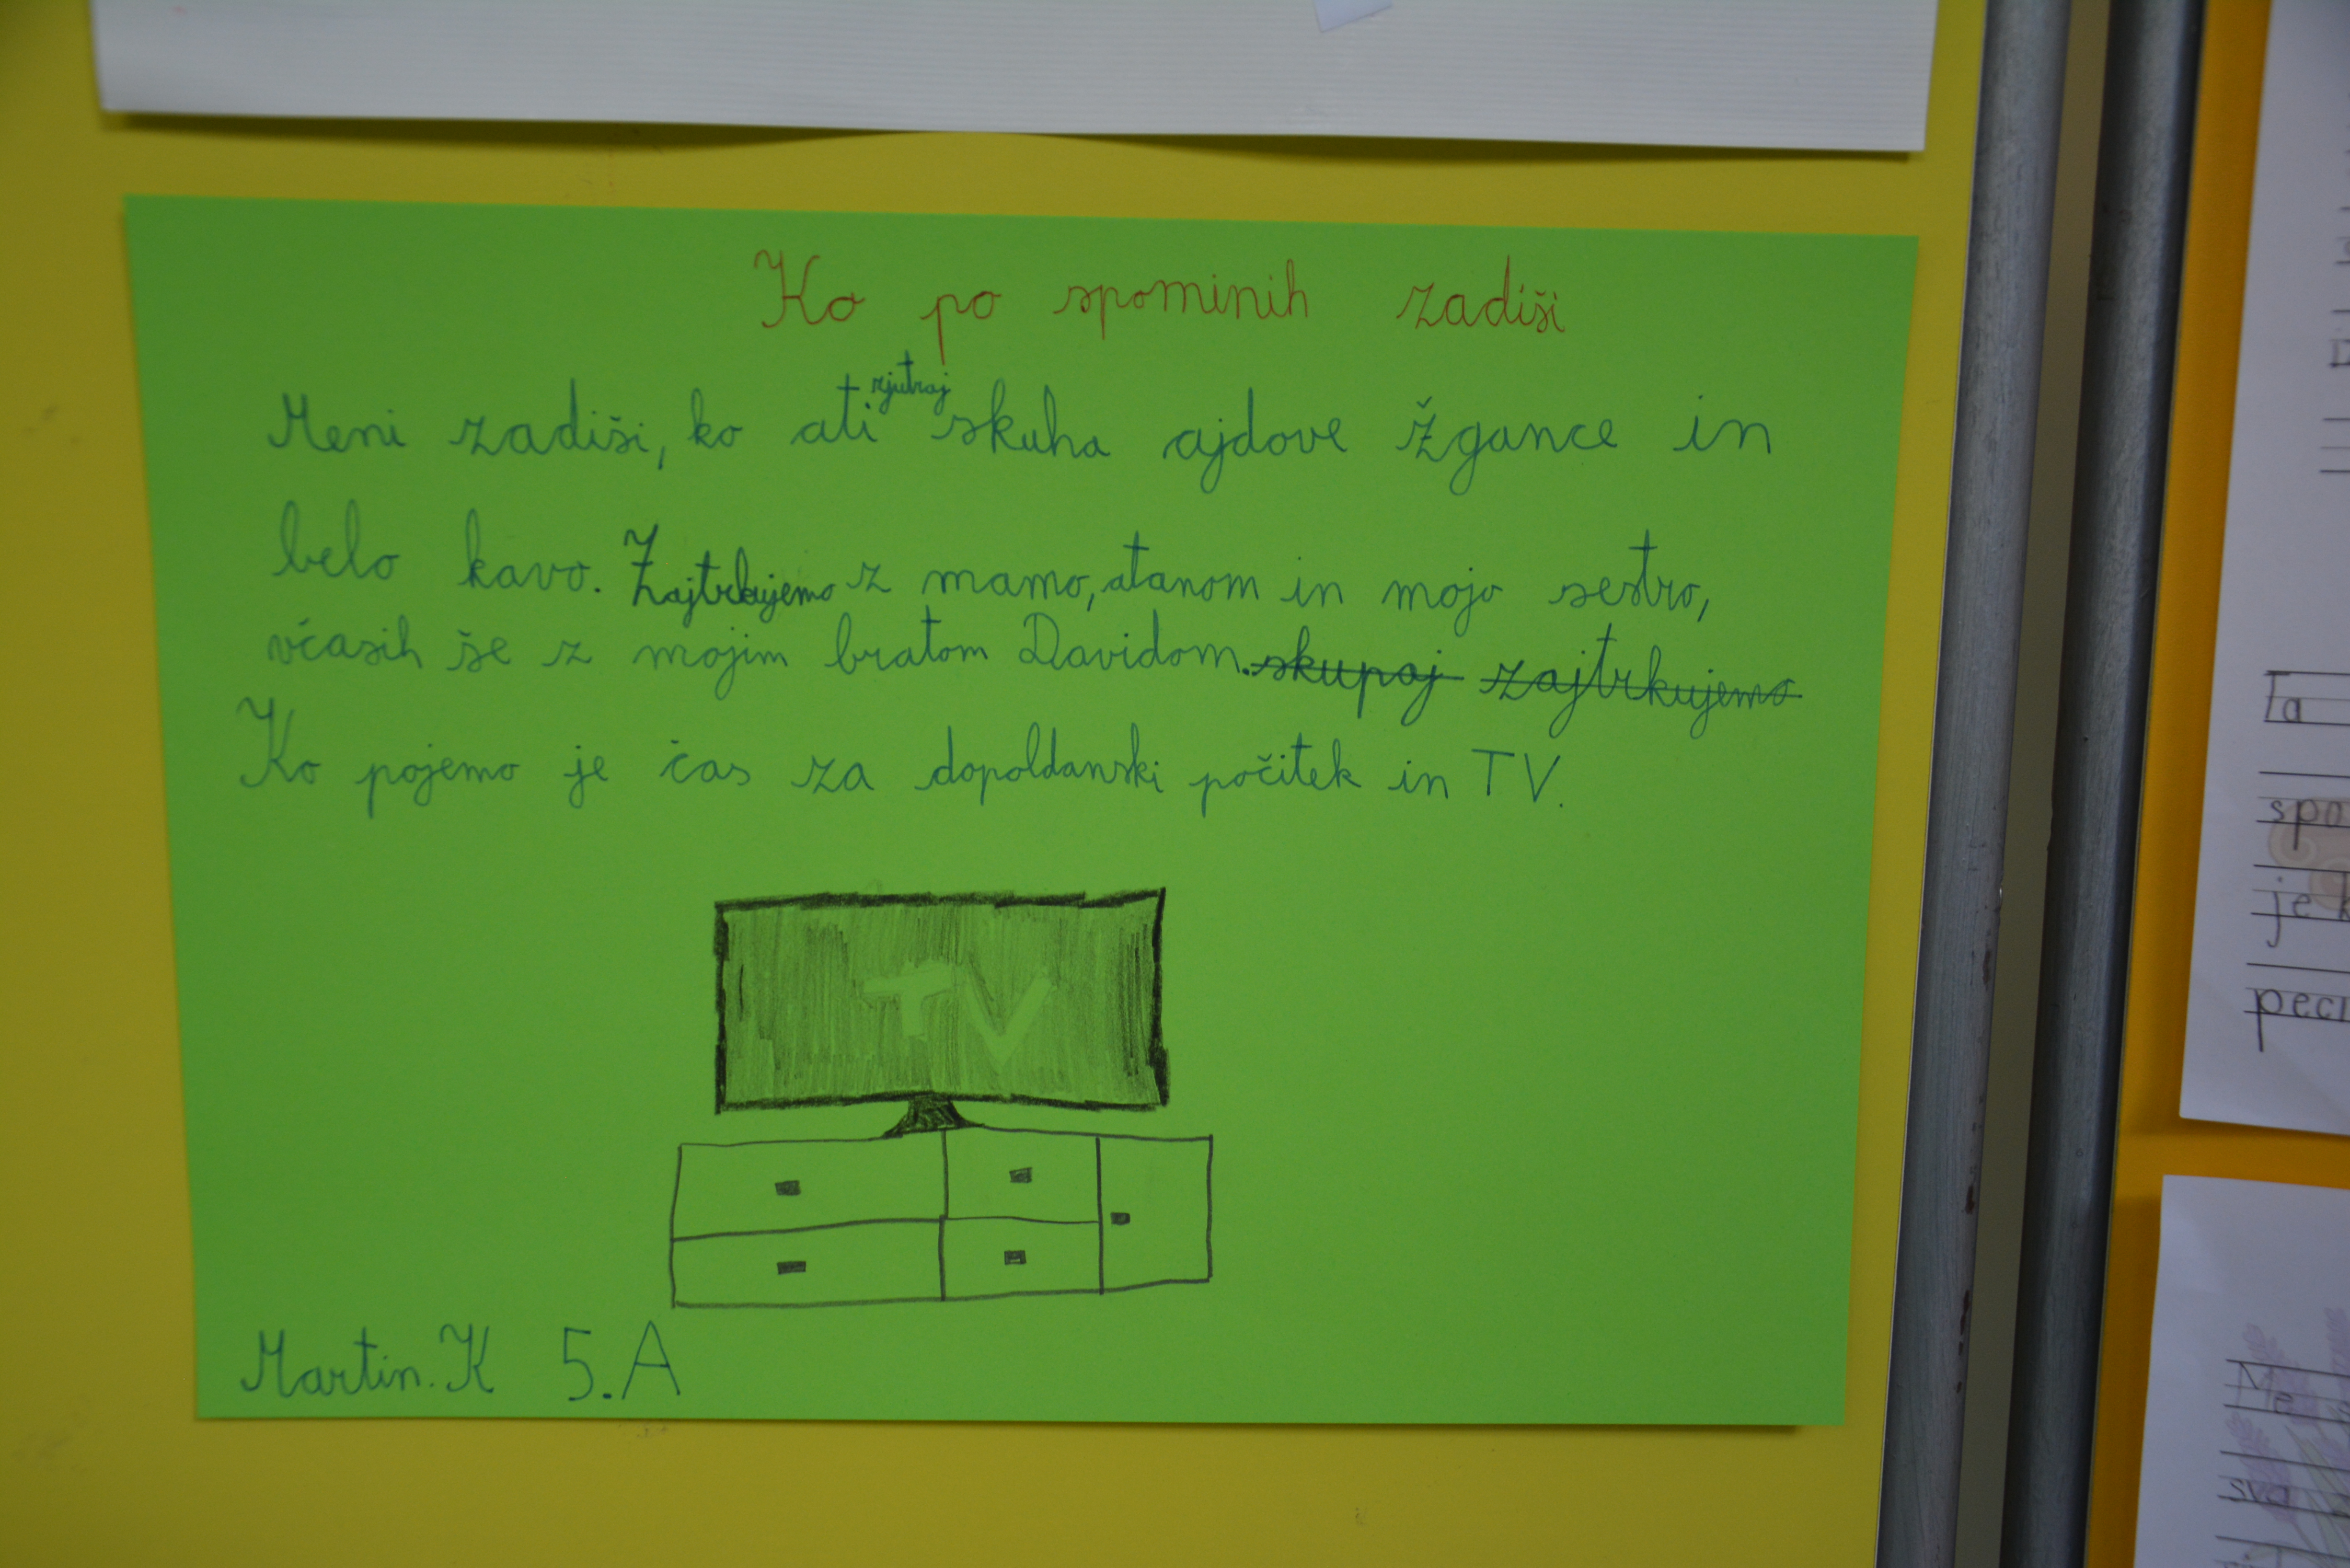 Ko po spominih zadiši
Meni zadiši, ko ati zjutraj skuha ajdove žgance in
belo kavo. Zajtrkujemo z mamo, atanom in mojo sestro,
včasih še z mojim bratom Davidom. skupaj zajtrkujemo
Ko pojemo je čas za dopoldanski počitek in TV.
TV
Martin. K 5.A
Ta
spo
je
peci
Me
svo